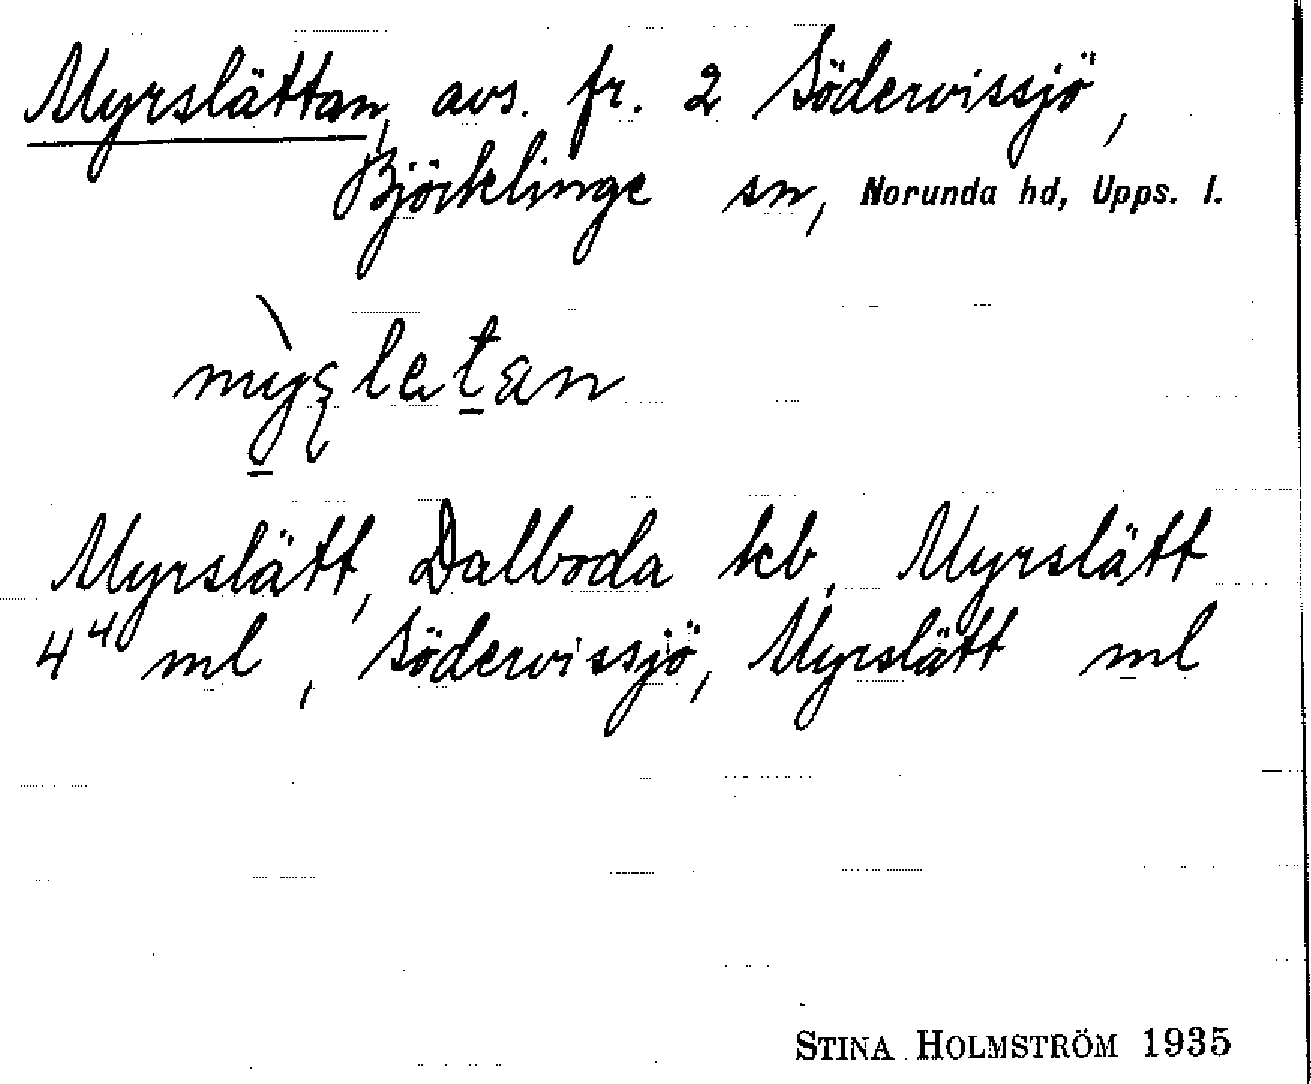 Myrslättan, avs. fr. 2 Södervissjö,
Björklinge sn, Norunda hd, Upps. l.
Myrslätt, Dalboda kb, Myrslätt
4⁴ ml, Södervissjö, Myrslätt ml
STINA HOLMSTRÖM 1935